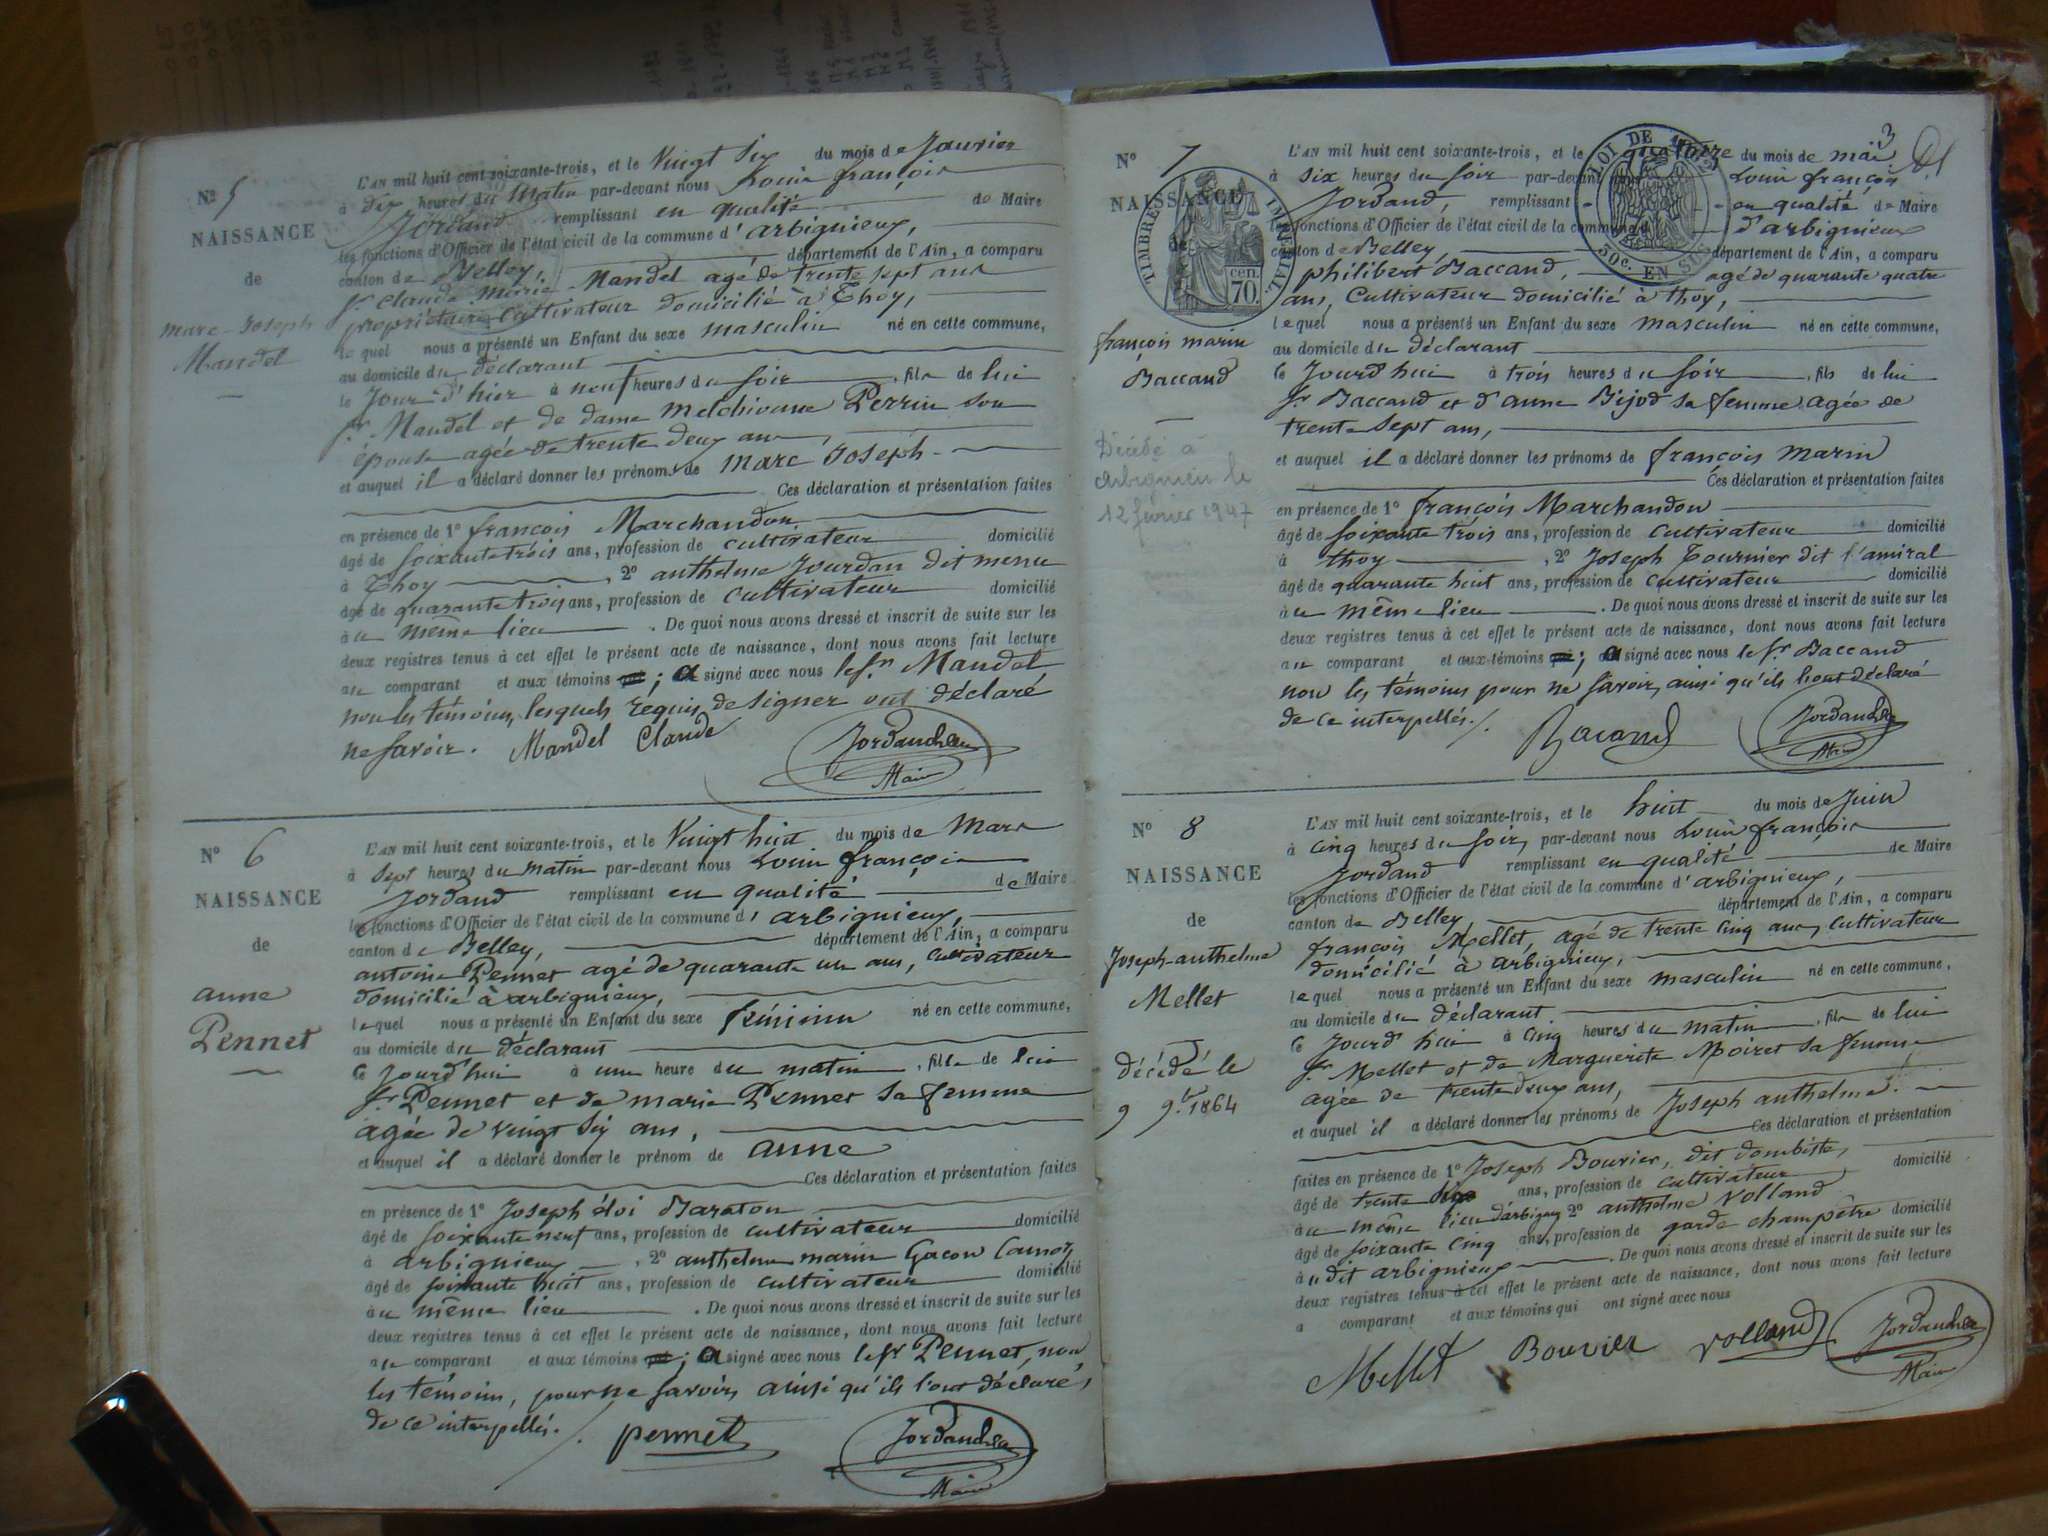 N° 5
NAISSANCE
de
marc-Joseph
Mandel
L'AN mil huit cent soixante-trois, et le Vingt Six du mois de Janvier
à dix heures du Matin par-devant nous Louis françois
Jordand remplissant en qualité de Maire
les fonctions d'Officier de l'état civil de la commune d'arbignieux,
canton de Belley, département de l'Ain, a comparu
Sr Claude Marie Mandel agé de trente sept ans
propriétaire Cultivateur domicilié à Thoy,
lequel nous a présenté un Enfant du sexe masculin né en cette commune,
au domicile du déclarant
le Jour d'hier à neuf heures du Soir, fils de lui
Sr Mandel et de dame Melchionne Perrin son
épouse agée de trente deux ans,
et auquel il a déclaré donner les prénoms de Marc Joseph
Ces déclaration et présentation faites
en présence de 1° françois Marchandon
âgé de Soixante trois ans, profession de cultivateur domicilié
à Thoy, 2° anthelme Jourdan dit menu
âgé de quarante trois ans, profession de cultivateur domicilié
au même lieu. De quoi nous avons dressé et inscrit de suite sur les
deux registres tenus à cet effet le présent acte de naissance, dont nous avons fait lecture
au comparant et aux témoins ; a signé avec nous le Sr. Mandel
non les témoins, lesquels requis de signer ont déclaré
ne savoir. Mandel Claude
Maire
N° 6
NAISSANCE
de
anne
Pennet
L'AN mil huit cent soixante-trois, et le Vingt huit du mois de Mars
à sept heures du matin par-devant nous Louis françois
Jordand remplissant en qualité de Maire
les fonctions d'Officier de l'état civil de la commune d'arbignieux,
canton de Belley, département de l'Ain, a comparu
antoine Pennet agé de quarante un ans, Cultivateur
domicilié à arbignieux,
lequel nous a présenté un Enfant du sexe féminin né en cette commune,
au domicile du déclarant
le Jourd'hui à une heure du matin, fille de lui
Sr Pennet et de marie Pennet sa femme
agée de vingt Six ans,
et auquel il a déclaré donner le prénom de anne
Ces déclaration et présentation faites
en présence de 1° Joseph éloi Baraton
âgé de Soixante neuf ans, profession de cultivateur domicilié
à arbignieux, 2° anthelme marin Gacon Camoz
âgé de soixante huit ans, profession de cultivateur domicilié
au même lieu. De quoi nous avons dressé et inscrit de suite sur les
deux registres tenus à cet effet le présent acte de naissance, dont nous avons fait lecture
au comparant et aux témoins ; a signé avec nous le Sr Pennet, non
les témoins, pour ne savoir, ainsi qu'ils l'ont déclaré,
de ce interpellés. pennet
Maire
3
N° 7
NAISSANCE
de
françois marin
Baccand
Décédé à
Arbignieu le
12 février 1947
TIMBRE IMPERIAL
70 cen.
LOI DE
50c. EN SUS
L'AN mil huit cent soixante-trois, et le quatorze du mois de mai
à six heures du soir par-devant nous Louis françois
Jordand, remplissant en qualité de Maire
les fonctions d'Officier de l'état civil de la commune d'arbignieux
canton de Belley, département de l'Ain, a comparu
philibert Baccand, agé de quarante quatre
ans, Cultivateur domicilié à thoy,
lequel nous a présenté un Enfant du sexe masculin né en cette commune,
au domicile du déclarant
le Jourd'hui à trois heures du soir, fils de lui
Sr Baccand et d'anne Bijod sa femme agée de
trente Sept ans,
et auquel il a déclaré donner les prénoms de françois Marin
Ces déclaration et présentation faites
en présence de 1° françois Marchandon
âgé de soixante trois ans, profession de cultivateur domicilié
à thoy, 2° Joseph Tournier dit l'amiral
âgé de quarante huit ans, profession de cultivateur domicilié
au même lieu. De quoi nous avons dressé et inscrit de suite sur les
deux registres tenus à cet effet le présent acte de naissance, dont nous avons fait lecture
au comparant et aux témoins ; a signé avec nous le Sr Baccand
non les témoins pour ne savoir, ainsi qu'ils l'ont déclaré
de ce interpellés. Bacand
Maire
N° 8
NAISSANCE
de
Joseph-anthelme
Mellet
décédé le
9 9bre 1864
L'AN mil huit cent soixante-trois, et le huit du mois de Juin
à cinq heures du soir, par-devant nous Louis françois
Jordand remplissant en qualité de Maire
les fonctions d'Officier de l'état civil de la commune d'arbignieux,
canton de Belley, département de l'Ain, a comparu
françois Mellet, agé de trente cinq ans, cultivateur
domicilié à arbignieux,
lequel nous a présenté un Enfant du sexe masculin né en cette commune,
au domicile du déclarant
le Jourd'hui à cinq heures du matin, fils de lui
Sr Mellet et de Marguerite Moiret sa femme
agée de trente deux ans,
et auquel il a déclaré donner les prénoms de Joseph anthelme.
Ces déclaration et présentation
faites en présence de 1° Joseph Bouvier, dit dombiste,
âgé de trente ans, profession de cultivateur domicilié
au même lieu d'arbigny 2° anthelme Volland
âgé de soixante cinq ans, profession de garde champêtre domicilié
au dit arbignieux. De quoi nous avons dressé et inscrit de suite sur les
deux registres tenus à cet effet le présent acte de naissance, dont nous avons fait lecture
a comparant et aux témoins qui ont signé avec nous
Mellet Bouvier Volland
Maire